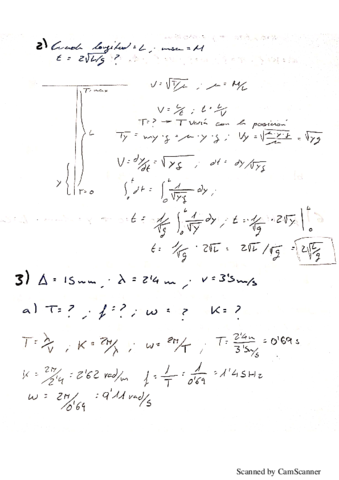 2) Cuerda longitud = L, masa = M
t = 2√L/g ?
T = max
V = √T/μ ; μ = M/L
V = L/t ; t = L/V
T = ? → T varía con la posición
L
Ty = my · g = μ · y · g ; Vy = √μ·y·g/μ = √yg
y
T = 0
V = dy/dt = √yg ; dt = dy/√yg
∫₀ᵗ dt = ∫₀ᴸ 1/√yg dy ;
t = 1/√g ∫₀ᴸ 1/√y dy ; t = 1/√g · 2√y |₀ᴸ
t = 1/√g · 2√L = 2√L/√g = 2√L/g
3) Δ = 15mm , λ = 2'4m ; v = 3'5m/s
a) T = ? , f = ? ; w = ? K = ?
T = λ/v ; K = 2π/λ ; w = 2π/T ; T = 2'4m/3'5m/s = 0'69 s
K = 2π/2'4 = 2'62 rad/m f = 1/T = 1/0'69 = 1'45Hz
w = 2π/0'69 = 9'11 rad/s
Scanned by CamScanner